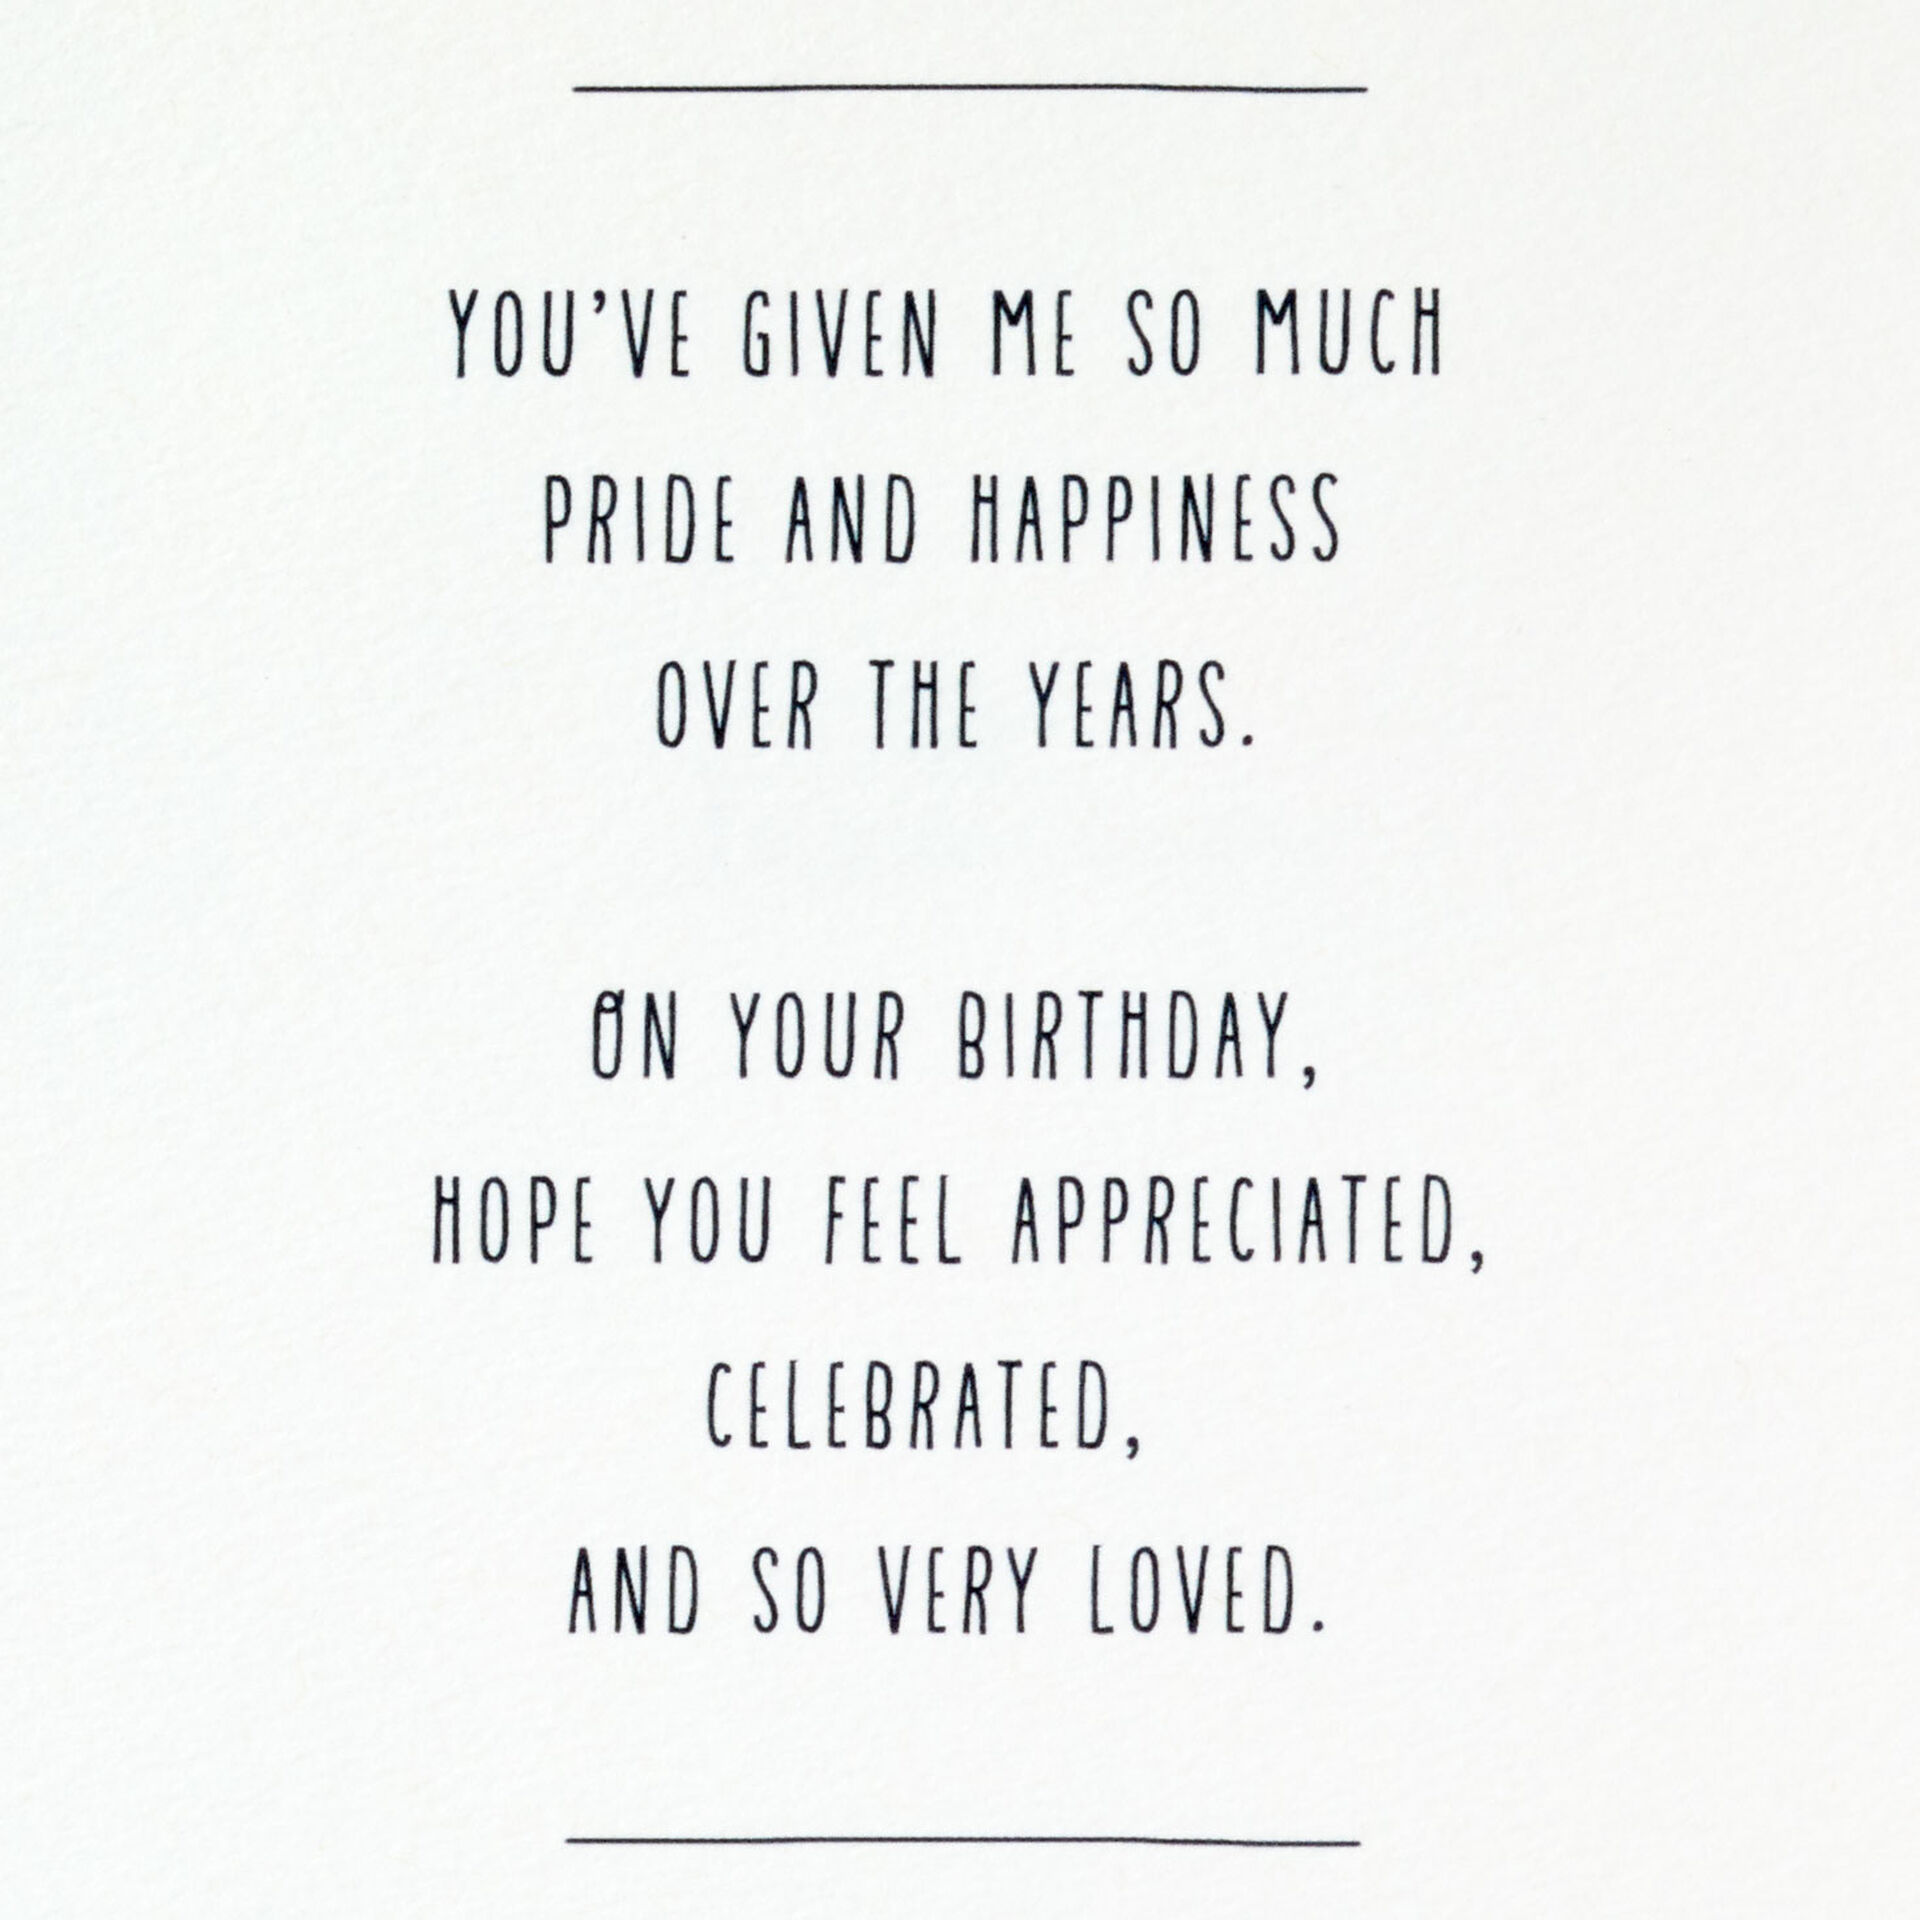 YOU'VE GIVEN ME SO MUCH
PRIDE AND HAPPINESS
OVER THE YEARS.
ON YOUR BIRTHDAY,
HOPE YOU FEEL APPRECIATED,
CELEBRATED,
AND SO VERY LOVED.